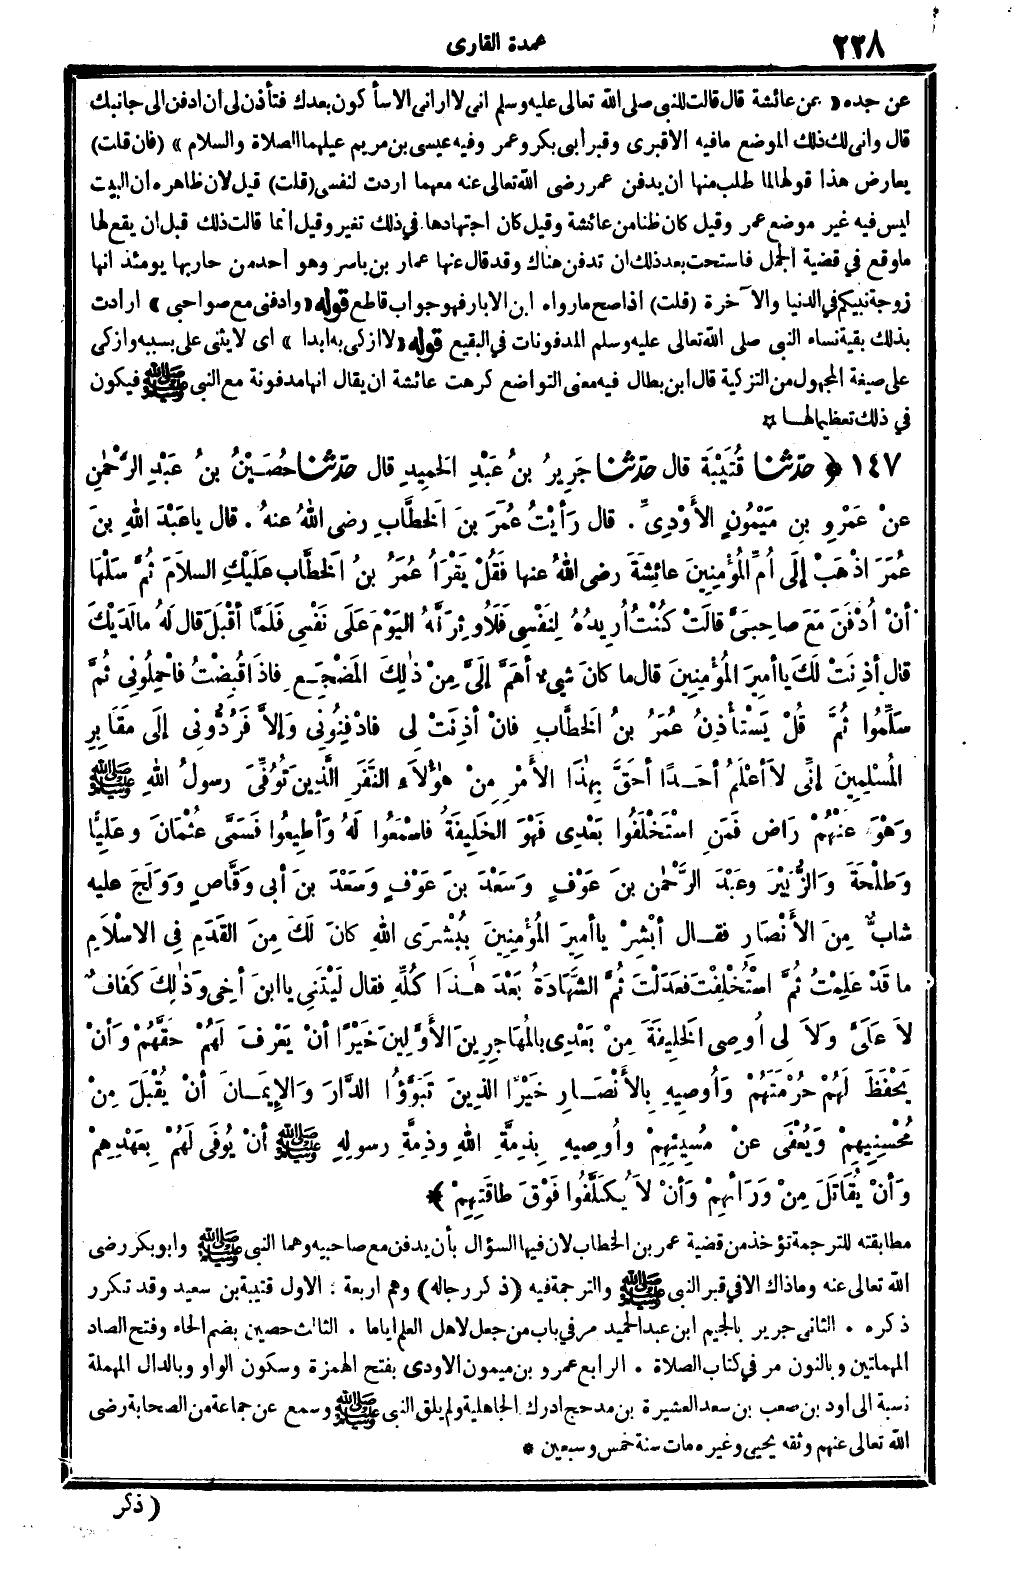 ٢٢٨
عمدة القارى
عن جده « عن عائشة قال قالت للنبى صلى الله تعالى عليه وسلم انى لا ارانى الا سأكون بعدك فتأذن لى أن ادفن الى جانبك
قال وانى لك ذلك الموضع مافيه الا قبرى وقبر أبى بكر وعمر وفيه عيسى بن مريم عليهما الصلاة والسلام » (فان قلت)
يعارض هذا قولها لما طلب منها ان يدفن عمر رضى الله تعالى عنه معهما اردت لنفسى (قلت) قيل لان ظاهره ان البيت
ليس فيه غير موضع عمر وقيل كان ظنا من عائشة وقيل كان اجتهادها فى ذلك تغير وقيل انما قالت ذلك قبل ان يقع لها
ماوقع فى قضية الجمل فاستحت بعد ذلك ان تدفن هناك وقد قال عنها عمار بن ياسر وهو أحد من حاربها يومئذ انها
زوجة نبيكم فى الدنيا والآخرة (قلت) اذا صح مارواه ابن الابار فهو جواب قاطع قوله «وادفنى مع صواحبى » ارادت
بذلك بقية نساء النبى صلى الله تعالى عليه وسلم المدفونات فى البقيع قوله «لا ازكى به ابدا » اى لا يثنى على بسببه وازكى
على صيغة المجهول من التزكية قال ابن بطال فيه معنى التواضع كرهت عائشة ان يقال انها مدفونة مع النبى ﷺ فيكون
فى ذلك تعظيما لها ✩
١٤٧ ﴿ حدثنا قُتَيْبَةُ قال حدثنا جَرِيرُ بنُ عَبْدِ الحَمِيدِ قال حدثنا حُصَيْنُ بنُ عَبْدِ الرَّحْمٰنِ
عنْ عَمْرِو بنِ مَيْمُونٍ الأوْدِىِّ . قال رَأيْتُ عُمَرَ بنَ الخطَّابِ رضى اللهُ عنهُ . قال يا عَبْدَ اللهِ بنَ
عُمَرَ اذْهَبْ إلَى أُمِّ المُؤْمِنِينَ عائِشَةَ رضى اللهُ عنها فَقُلْ يَقْرَأُ عُمَرُ بنُ الخطَّاب عَلَيْكِ السلامَ ثُمَّ سَلْهَا
أنْ أُدْفَنَ مَعَ صاحِبَىَّ قالَتْ كُنْتُ أُرِيدُهُ لِنَفْسِى فَلَأُوثِرَنَّهُ اليَوْمَ عَلَى نَفْسِى فَلَمَّا أقْبَلَ قال لَهُ مالَدَيْكَ
قال أذِنَتْ لَكَ يا أمِيرَ المُؤْمِنِينَ قال ما كانَ شىْءٌ أهَمَّ إلَىَّ مِنْ ذٰلِكَ المَضْجَعِ فاذَا قُبِضْتُ فاحْمِلُونِى ثُمَّ
سَلِّمُوا ثُمَّ قُلْ يَسْتَأذِنُ عُمَرُ بنُ الخطَّابِ فانْ أذِنَتْ لِى فادْفِنُونِى وَإلاَّ فَرُدُّونِى إلَى مَقَابِرِ
المُسْلِمِينَ إنِّى لاَ أعْلَمُ أحَدًا أحَقَّ بِهٰذَا الأمْرِ مِنْ هٰؤُلاَءِ النَّفَرِ الَّذِينَ تُوُفِّىَ رسولُ اللهِ ﷺ
وَهْوَ عَنْهُمْ رَاضٍ فَمَنِ اسْتَخْلَفُوا بَعْدِى فَهْوَ الخَلِيفَةُ فاسْمَعُوا لَهُ وَأطِيعُوا فَسَمَّى عثْمَانَ وعَلِيًّا
وَطَلْحَةَ وَالزُّبَيْرَ وعَبْدَ الرَّحْمٰنِ بنَ عَوْفٍ وَسَعْدَ بنَ عَوْفٍ وَسَعْدَ بنَ أبى وَقَّاصٍ وَوَلَجَ عليه
شابٌّ مِنَ الأنْصَارِ فقال أبْشِرْ يا أمِيرَ المُؤْمِنِينَ بِبُشْرَى اللهِ كانَ لَكَ مِنَ القَدَمِ فِى الاسْلاَمِ
ما قَدْ عَلِمْتُ ثُمَّ اسْتُخْلِفْتَ فعَدَلْتَ ثُمَّ الشَّهَادَةُ بَعْدَ هٰذَا كُلِّهِ فقال لَيْتَنِى يا ابنَ أخِى وَذٰلِكَ كَفَافٌ
لاَ عَلَىَّ وَلاَ لِى أُوصِى الخَلِيفَةَ مِنْ بَعْدِى بالمُهَاجِرِينَ الأوَّلِينَ خَيْرًا أنْ يَعْرِفَ لَهُمْ حَقَّهُمْ وَأنْ
يَحْفَظَ لَهُمْ حُرْمَتَهُمْ وَأُوصِيهِ بالأنْصَارِ خَيْرًا الذِينَ تَبَوَّؤُا الدَّارَ وَالإيمَانَ أنْ يُقْبَلَ مِنْ
مُحْسِنِيهِمْ وَيُعْفَى عنْ مُسِيئِهِمْ وأُوصِيهِ بِذِمَّةِ اللهِ وذِمَّةِ رسولِهِ ﷺ أنْ يُوفَى لَهُمْ بِعَهْدِهِمْ
وَأنْ يُقَاتَلَ مِنْ وَرَائِهِمْ وَأنْ لاَ يُكَلَّفُوا فَوْقَ طاقَتِهِمْ ﴾
مطابقته للترجمة تؤخذ من قضية عمر بن الخطاب لان فيها السؤال بأن يدفن مع صاحبيه وهما النبى ﷺ وابو بكر رضى
الله تعالى عنه وماذاك الا فى قبر النبى ﷺ والترجمة فيه (ذكر رجاله) وهم اربعة : الاول قتيبة بن سعيد وقد تكرر
ذكره . الثانى جرير بالجيم ابن عبد الحميد مر فى باب من جعل لاهل العلم اياما . الثالث حصين بضم الحاء وفتح الصاد
المهملتين وبالنون مر فى كتاب الصلاة . الرابع عمرو بن ميمون الاودى بفتح الهمزة وسكون الواو وبالدال المهملة
نسبة الى اود بن صعب بن سعد العشيرة بن مدحج ادرك الجاهلية ولم يلق النبى ﷺ وسمع عن جماعة من الصحابة رضى
الله تعالى عنهم وثقه يحيى وغيره مات سنة خمس وسبعين *
(ذكر